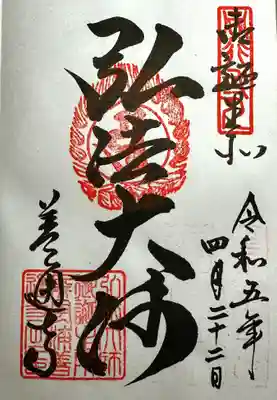 御誕生所
令和五年
四月二十二日
弘法大師
善通寺